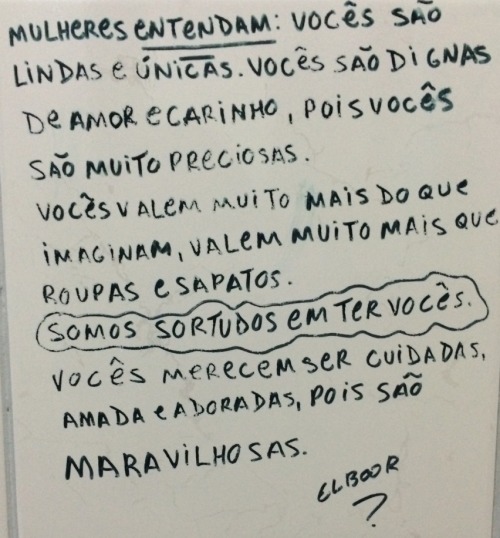 MULHERES ENTENDAM: VOCÊS SÃO
LINDAS E ÚNICAS. VOCÊS SÃO DIGNAS
DE AMOR E CARINHO, POIS VOCÊS
SÃO MUITO PRECIOSAS.
VOCÊS VALEM MUITO MAIS DO QUE
IMAGINAM, VALEM MUITO MAIS QUE
ROUPAS E SAPATOS.
SOMOS SORTUDOS EM TER VOCÊS.
VOCÊS MERECEM SER CUIDADAS,
AMADA E ADORADAS, POIS SÃO
MARAVILHOSAS.
ELBOOR
?